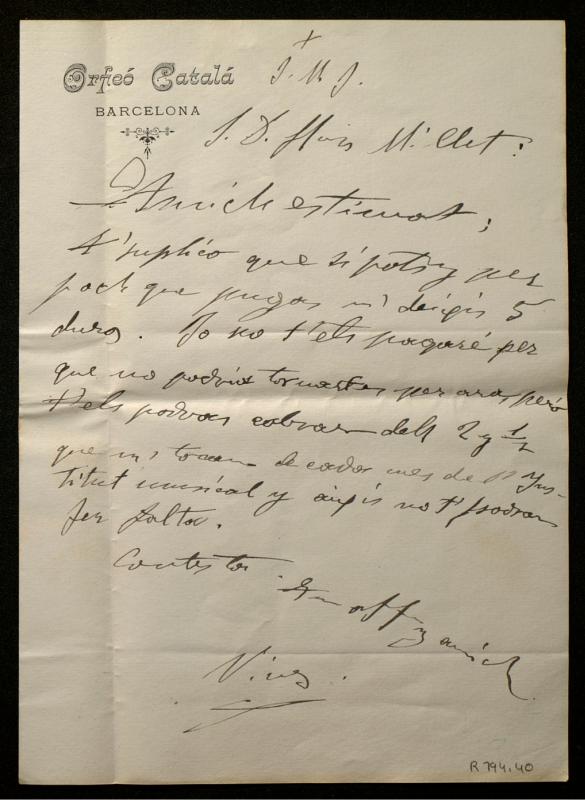 Orfeó Catalá
BARCELONA
+
J. M. J.
S. D. Lluis Millet:
Amich estimat;
T' suplico que si pots y per
poch que pugas m' deixis 5
duros. Jo no t'els pagaré per
que no podria tornartes per ara, però
t'els podras cobrar dels 2 y 1/2
que m's tocan de cada mes de l' Ins-
titut musical y aixis no t' podran
fer falta.
Contesta.
Ton affm amich
Vives.
R 794.40